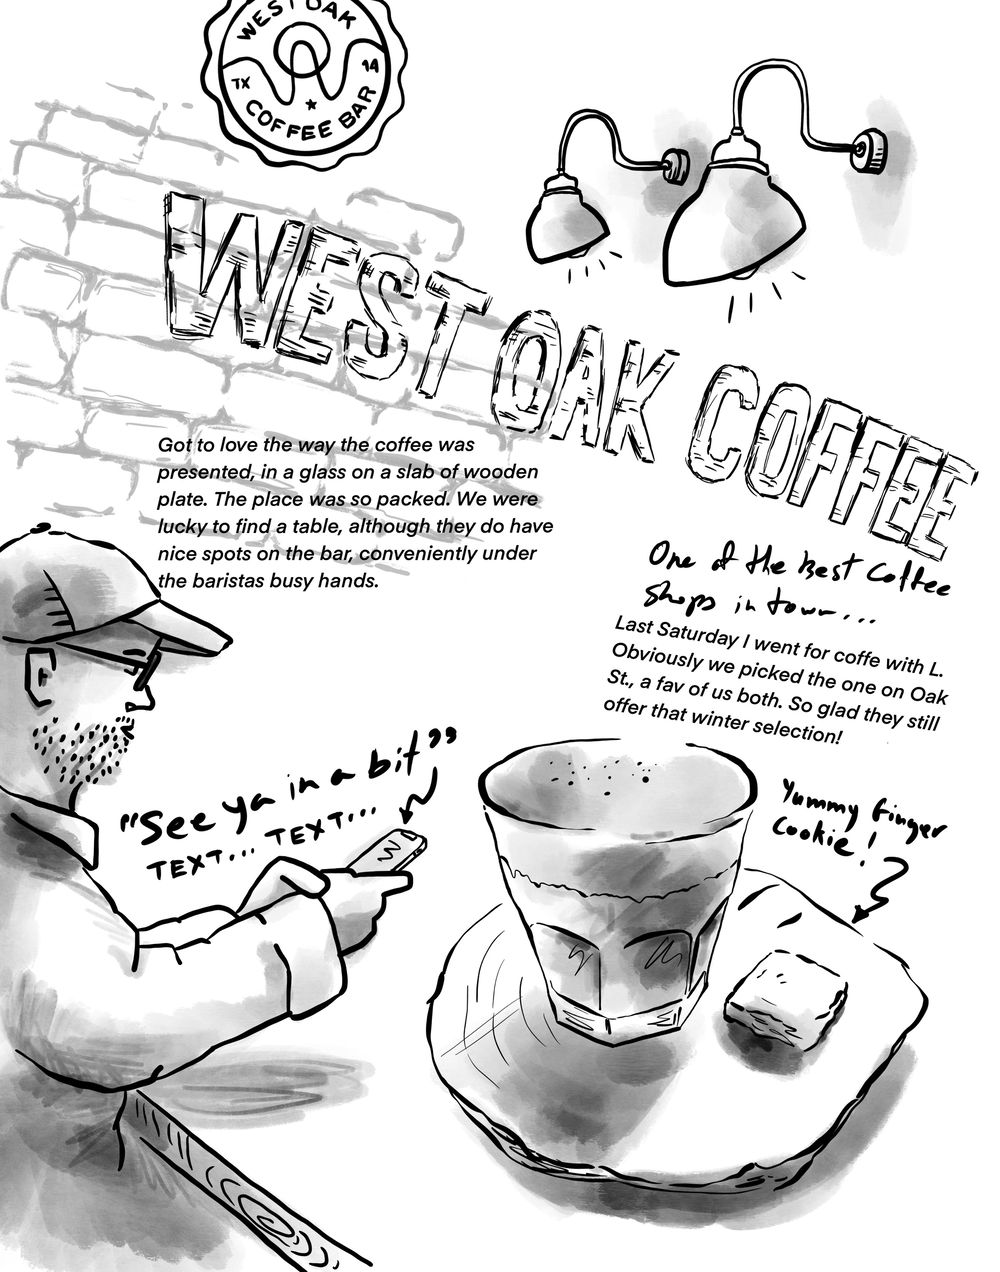 WEST OAK
TX
14
COFFEE BAR
WEST OAK COFFEE
Got to love the way the coffee was
presented, in a glass on a slab of wooden
plate. The place was so packed. We were
lucky to find a table, although they do have
nice spots on the bar, conveniently under
the baristas busy hands.
One of the best Coffee
shops in town...
Last Saturday I went for coffe with L.
Obviously we picked the one on Oak
St., a fav of us both. So glad they still
offer that winter selection!
"See ya in a bit"
TEXT... TEXT...
Yummy finger
Cookie!